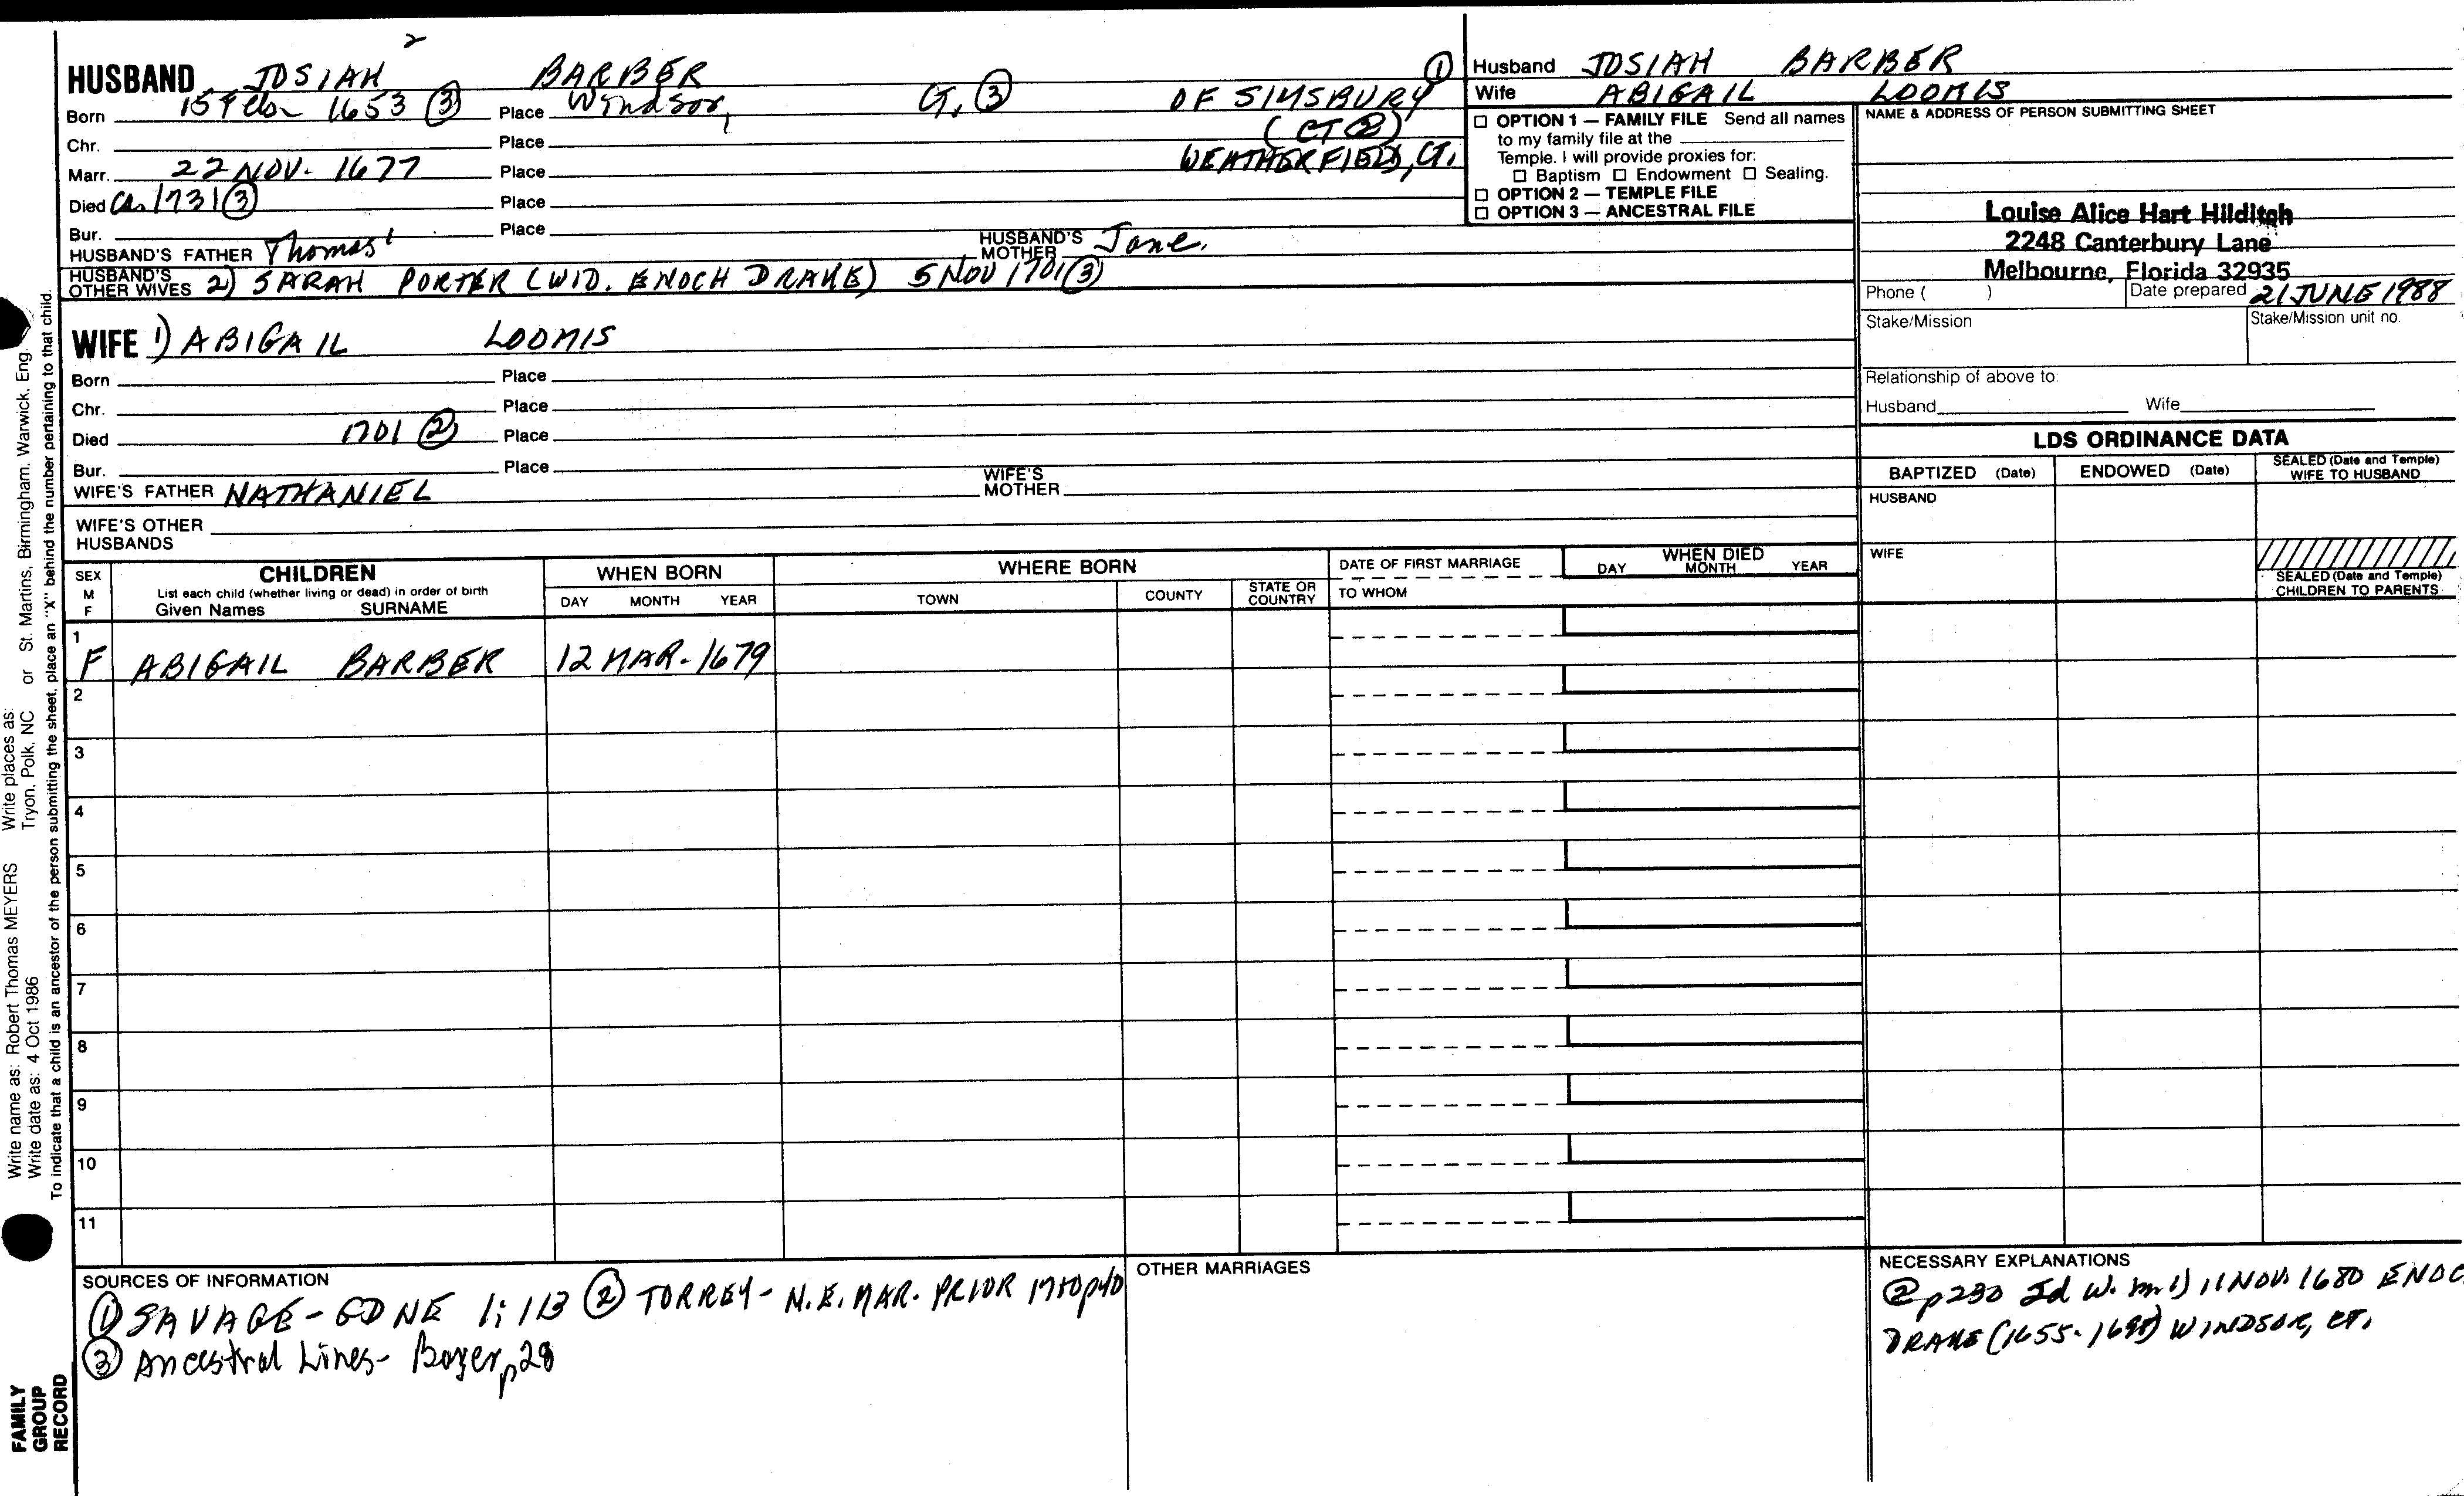 2
HUSBAND JOSIAH BARBER ①
Born 15 Feb 1653 ③ Place Windsor, Ct. ③ OF SIMSBURY
(CT ②)
Chr. Place
Marr. 22 NOV. 1677 Place WEATHERFIELD, CT.
Died Ca. 1731 ③ Place
Bur. Place
HUSBAND'S FATHER Thomas¹ HUSBAND'S MOTHER Jane.
HUSBAND'S OTHER WIVES 2) SARAH PORTER (WID. ENOCH DRAKE) 5 NOV 1701 ③
WIFE 1) ABIGAIL LOOMIS
Born Place
Chr. Place
Died 1701 ② Place
Bur. Place
WIFE'S FATHER NATHANIEL WIFE'S MOTHER
WIFE'S OTHER HUSBANDS
Husband JOSIAH BARBER
Wife ABIGAIL LOOMIS
☐ OPTION 1 — FAMILY FILE Send all names
to my family file at the
Temple. I will provide proxies for:
☐ Baptism ☐ Endowment ☐ Sealing.
☐ OPTION 2 — TEMPLE FILE
☐ OPTION 3 — ANCESTRAL FILE
NAME & ADDRESS OF PERSON SUBMITTING SHEET
Louise Alice Hart Hilditch
2248 Canterbury Lane
Melbourne, Florida 32935
Phone ( ) Date prepared 21 JUNE 1988
Stake/Mission Stake/Mission unit no.
Relationship of above to:
Husband Wife
LDS ORDINANCE DATA
BAPTIZED (Date) ENDOWED (Date) SEALED (Date and Temple) WIFE TO HUSBAND
HUSBAND
WIFE
SEALED (Date and Temple) CHILDREN TO PARENTS
SEX M F
CHILDREN
List each child (whether living or dead) in order of birth
Given Names SURNAME
WHEN BORN
DAY MONTH YEAR
WHERE BORN
TOWN COUNTY STATE OR COUNTRY
DATE OF FIRST MARRIAGE
TO WHOM
WHEN DIED
DAY MONTH YEAR
1
F ABIGAIL BARBER 12 MAR. 1679
2
3
4
5
6
7
8
9
10
11
SOURCES OF INFORMATION
① SAVAGE - GDNE 1; 113 ② TORREY - N.E. MAR. PRIOR 1700 p40
③ Ancestral Lines - Boyer, p28
OTHER MARRIAGES
NECESSARY EXPLANATIONS
② p230 2d W. m 1) 11 NOV. 1680 ENOC
DRAKE (1655-1698) WINDSOR, CT.
Write name as: Robert Thomas MEYERS Write places as: St. Martins, Birmingham, Warwick, Eng.
Write date as: 4 Oct 1986 Tryon, Polk, NC or
To indicate that a child is an ancestor of the person submitting the sheet, place an "X" behind the number pertaining to that child.
FAMILY
GROUP
RECORD